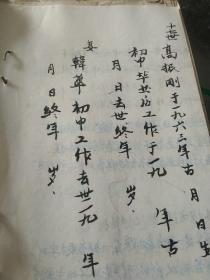 十世高振刚于一九六三年古 月 日生
初中毕业后工作于一九 年古
月 日去世终年 岁.
妻韩华初中工作去世一九 年
月 日终年 岁.